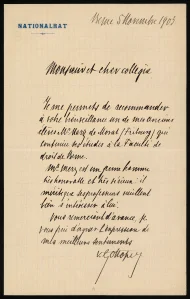 NATIONALRAT
Berne 5 Novembre 1903
Monsieur et cher collègue
Je me permets de recommander
à votre bienveillance un de mes anciens
élèves M. Merz de Morat (Fribourg) qui
continue ses études à la Faculté de
droit de Berne.
Mr Merz est un jeune homme
très honorable et très sérieux : il
mérite que ses professeurs veuillent
bien s'intéresser à lui.
Vous remerciant d'avance, je
vous prie d'agréer l'expression de
mes meilleurs sentiments